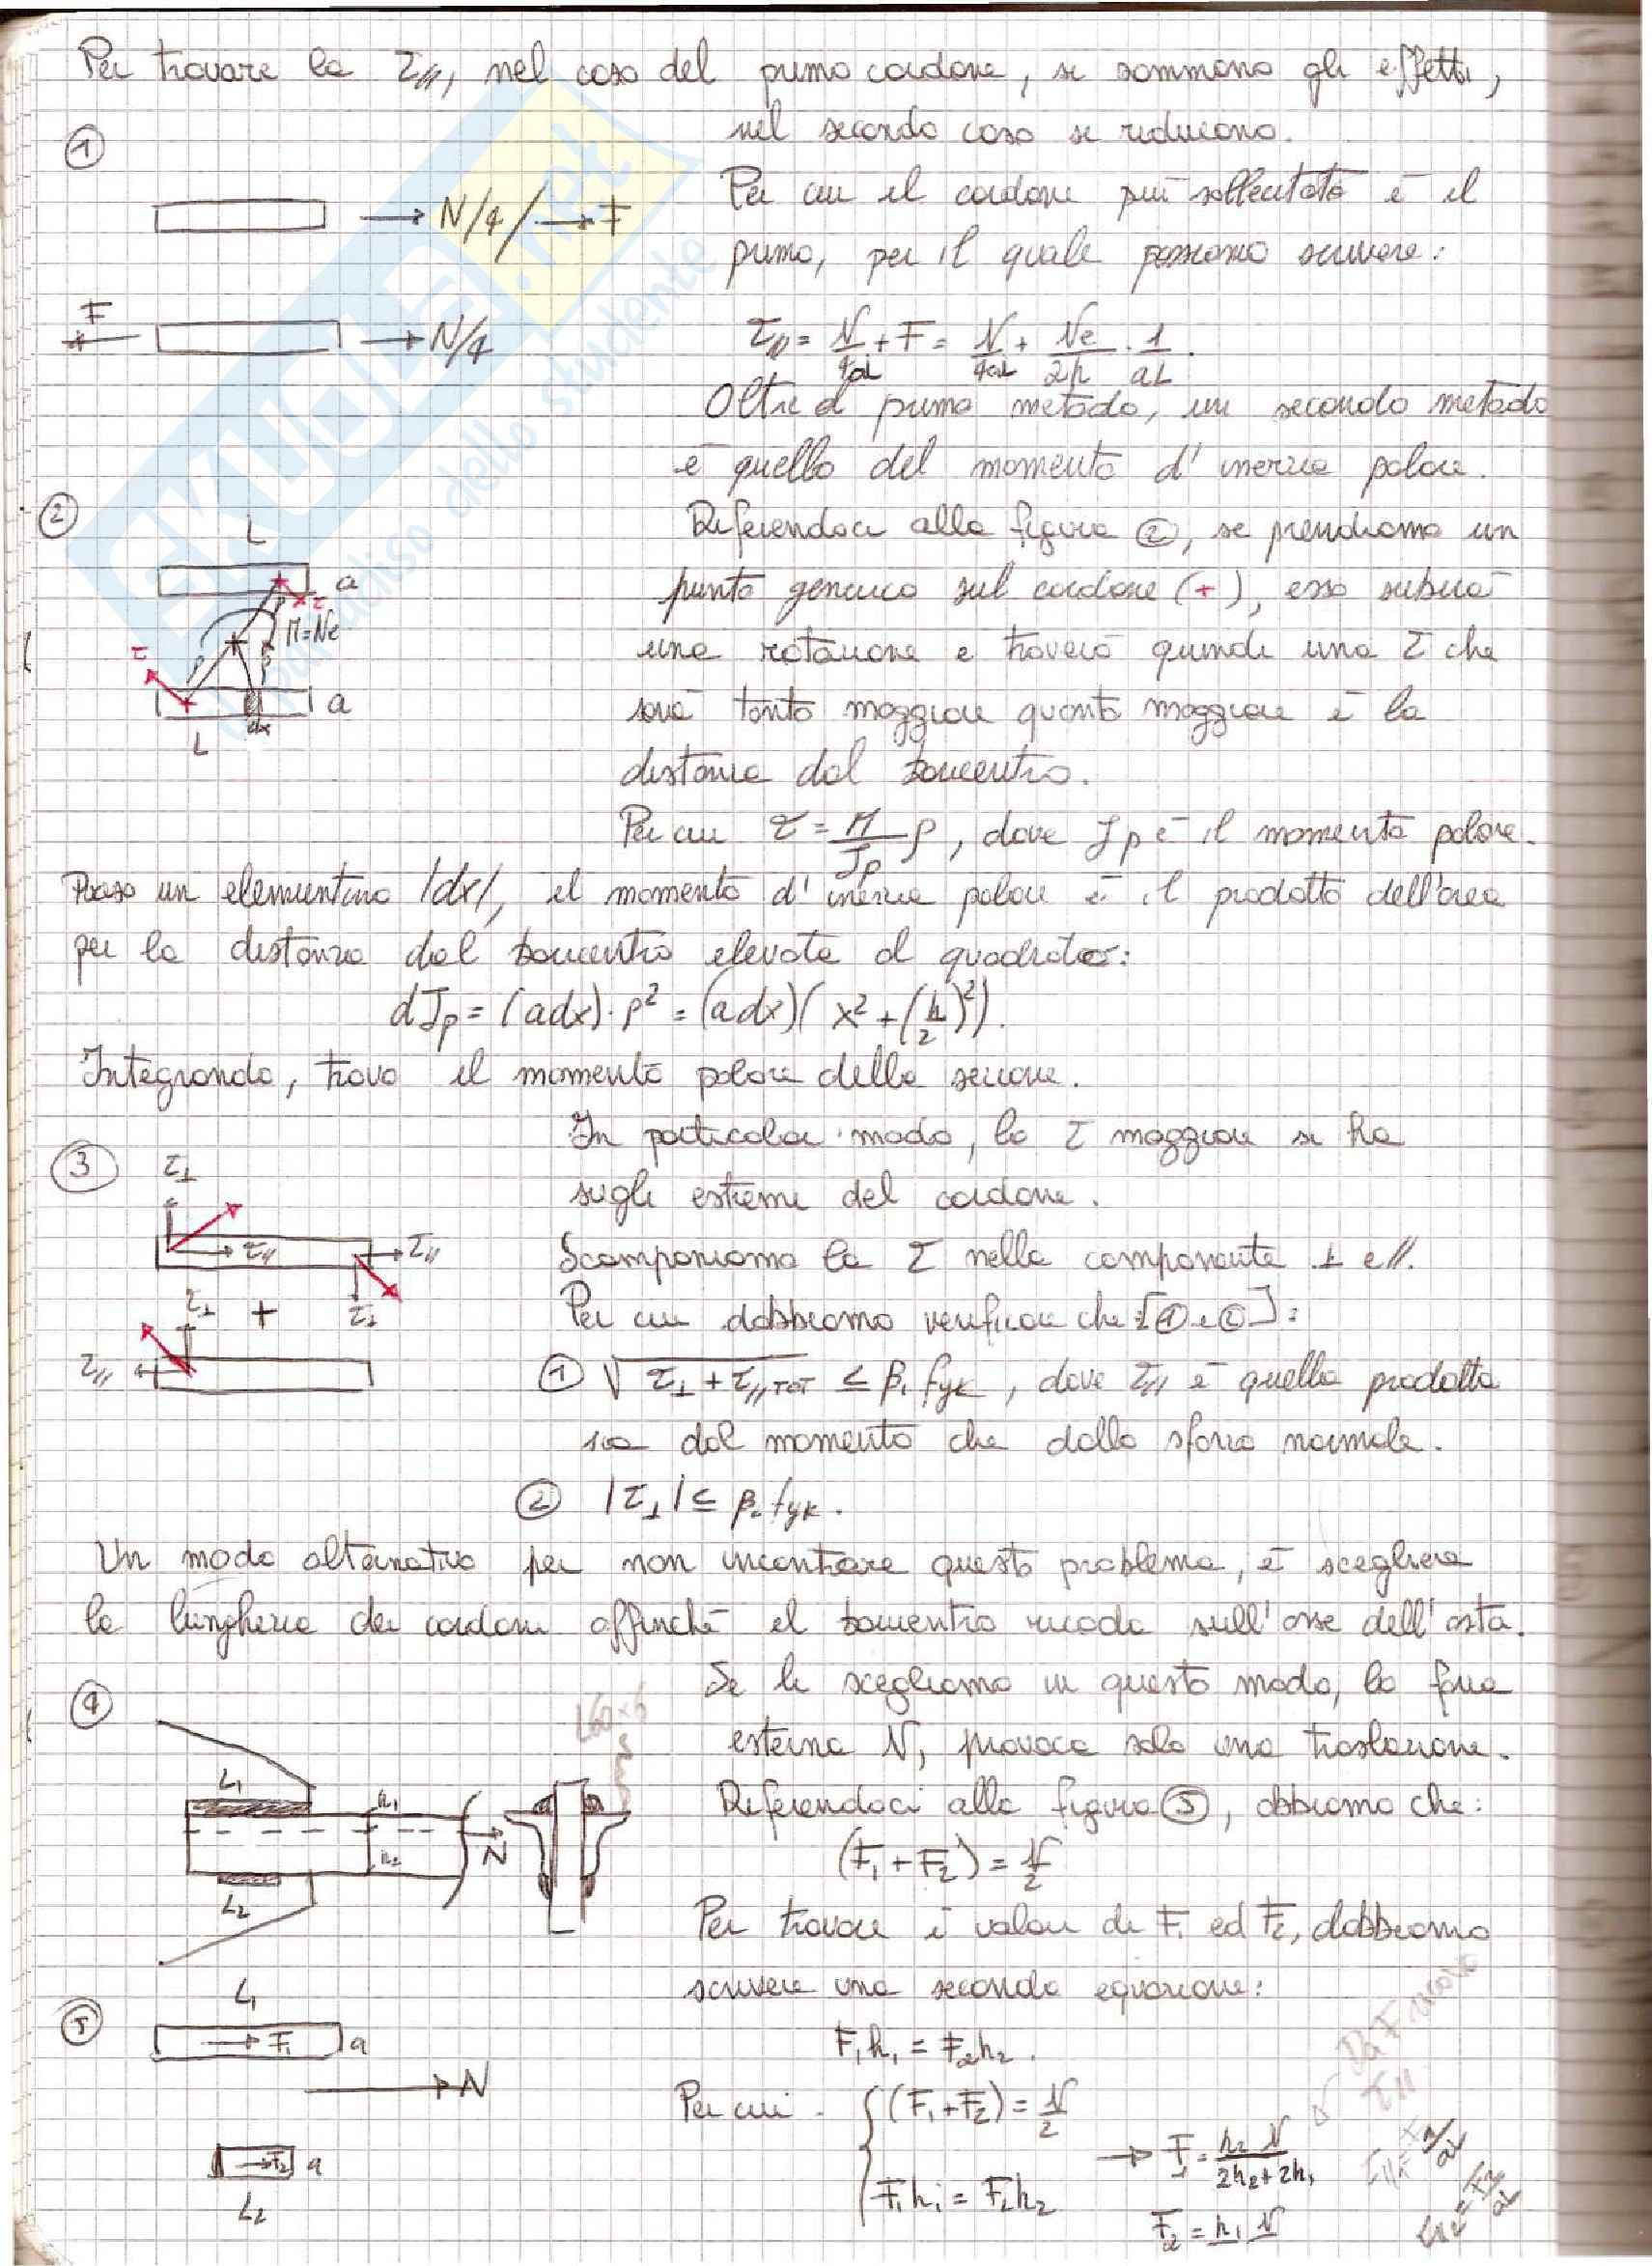 Per trovare la τ//, nel caso del primo cordone, si sommano gli effetti,
nel secondo caso si riducono.
①
Per cui il cordone più sollecitato è il
→ N/4 / → F
primo, per il quale possiamo scrivere:
F
→ N/4
τ// = N/4aL + F = N/4aL + Ne/2h · 1/aL.
Oltre al primo metodo, un secondo metodo
è quello del momento d'inerzia polare.
②
L
Riferendoci alla figura ②, se prendiamo un
a
τ
punto generico sul cordone (+), esso subirà
M=Ne
una rotazione e troverò quindi una τ che
τ
ρ
ρ
a
sarà tanto maggiore quanto maggiore è la
dx
L
distanza dal baricentro.
Per cui τ = M/Jp ρ, dove Jp è il momento polare.
Preso un elementino |dx|, il momento d'inerzia polare è il prodotto dell'area
per la distanza dal baricentro elevata al quadrato:
dJp = (adx)·ρ² = (adx)(x² + (h/2)²).
Integrando, trovo il momento polare della sezione.
In particolar modo, la τ maggiore si ha
③
τ⊥
sugli estremi del cordone.
τ//
τ//
Scomponiamo la τ nella componente ⊥ e //.
τ⊥
+
τ⊥
Per cui dobbiamo verificare che [① e ②]:
τ//
① √ τ⊥ + τ// TOT ≤ β₁ fyk, dove τ// è quella prodotta
sia dal momento che dallo sforzo normale.
② |τ⊥| ≤ β₂ fyk.
Un modo alternativo per non incontrare questo problema, è scegliere
la lunghezza dei cordoni affinché il baricentro ricada sull'asse dell'asta.
Se li scegliamo in questo modo, la forza
④
L60×6
esterna N, provoca solo una traslazione.
L₁
h₁
Riferendoci alla figura ⑤, abbiamo che:
N
h₂
(F₁ + F₂) = N/2
L₂
Per trovare i valori di F₁ ed F₂, dobbiamo
scrivere una seconda equazione:
L₁
⑤
→ F₁
a
F₁h₁ = F₂h₂.
Da F ricavo
τ//
→ N
Per cui. { (F₁+F₂) = N/2
F₁h₁ = F₂h₂
→ F₁ = h₂ N / 2h₂+2h₁
→ F₂
a
L₂
F₂ = h₁ N